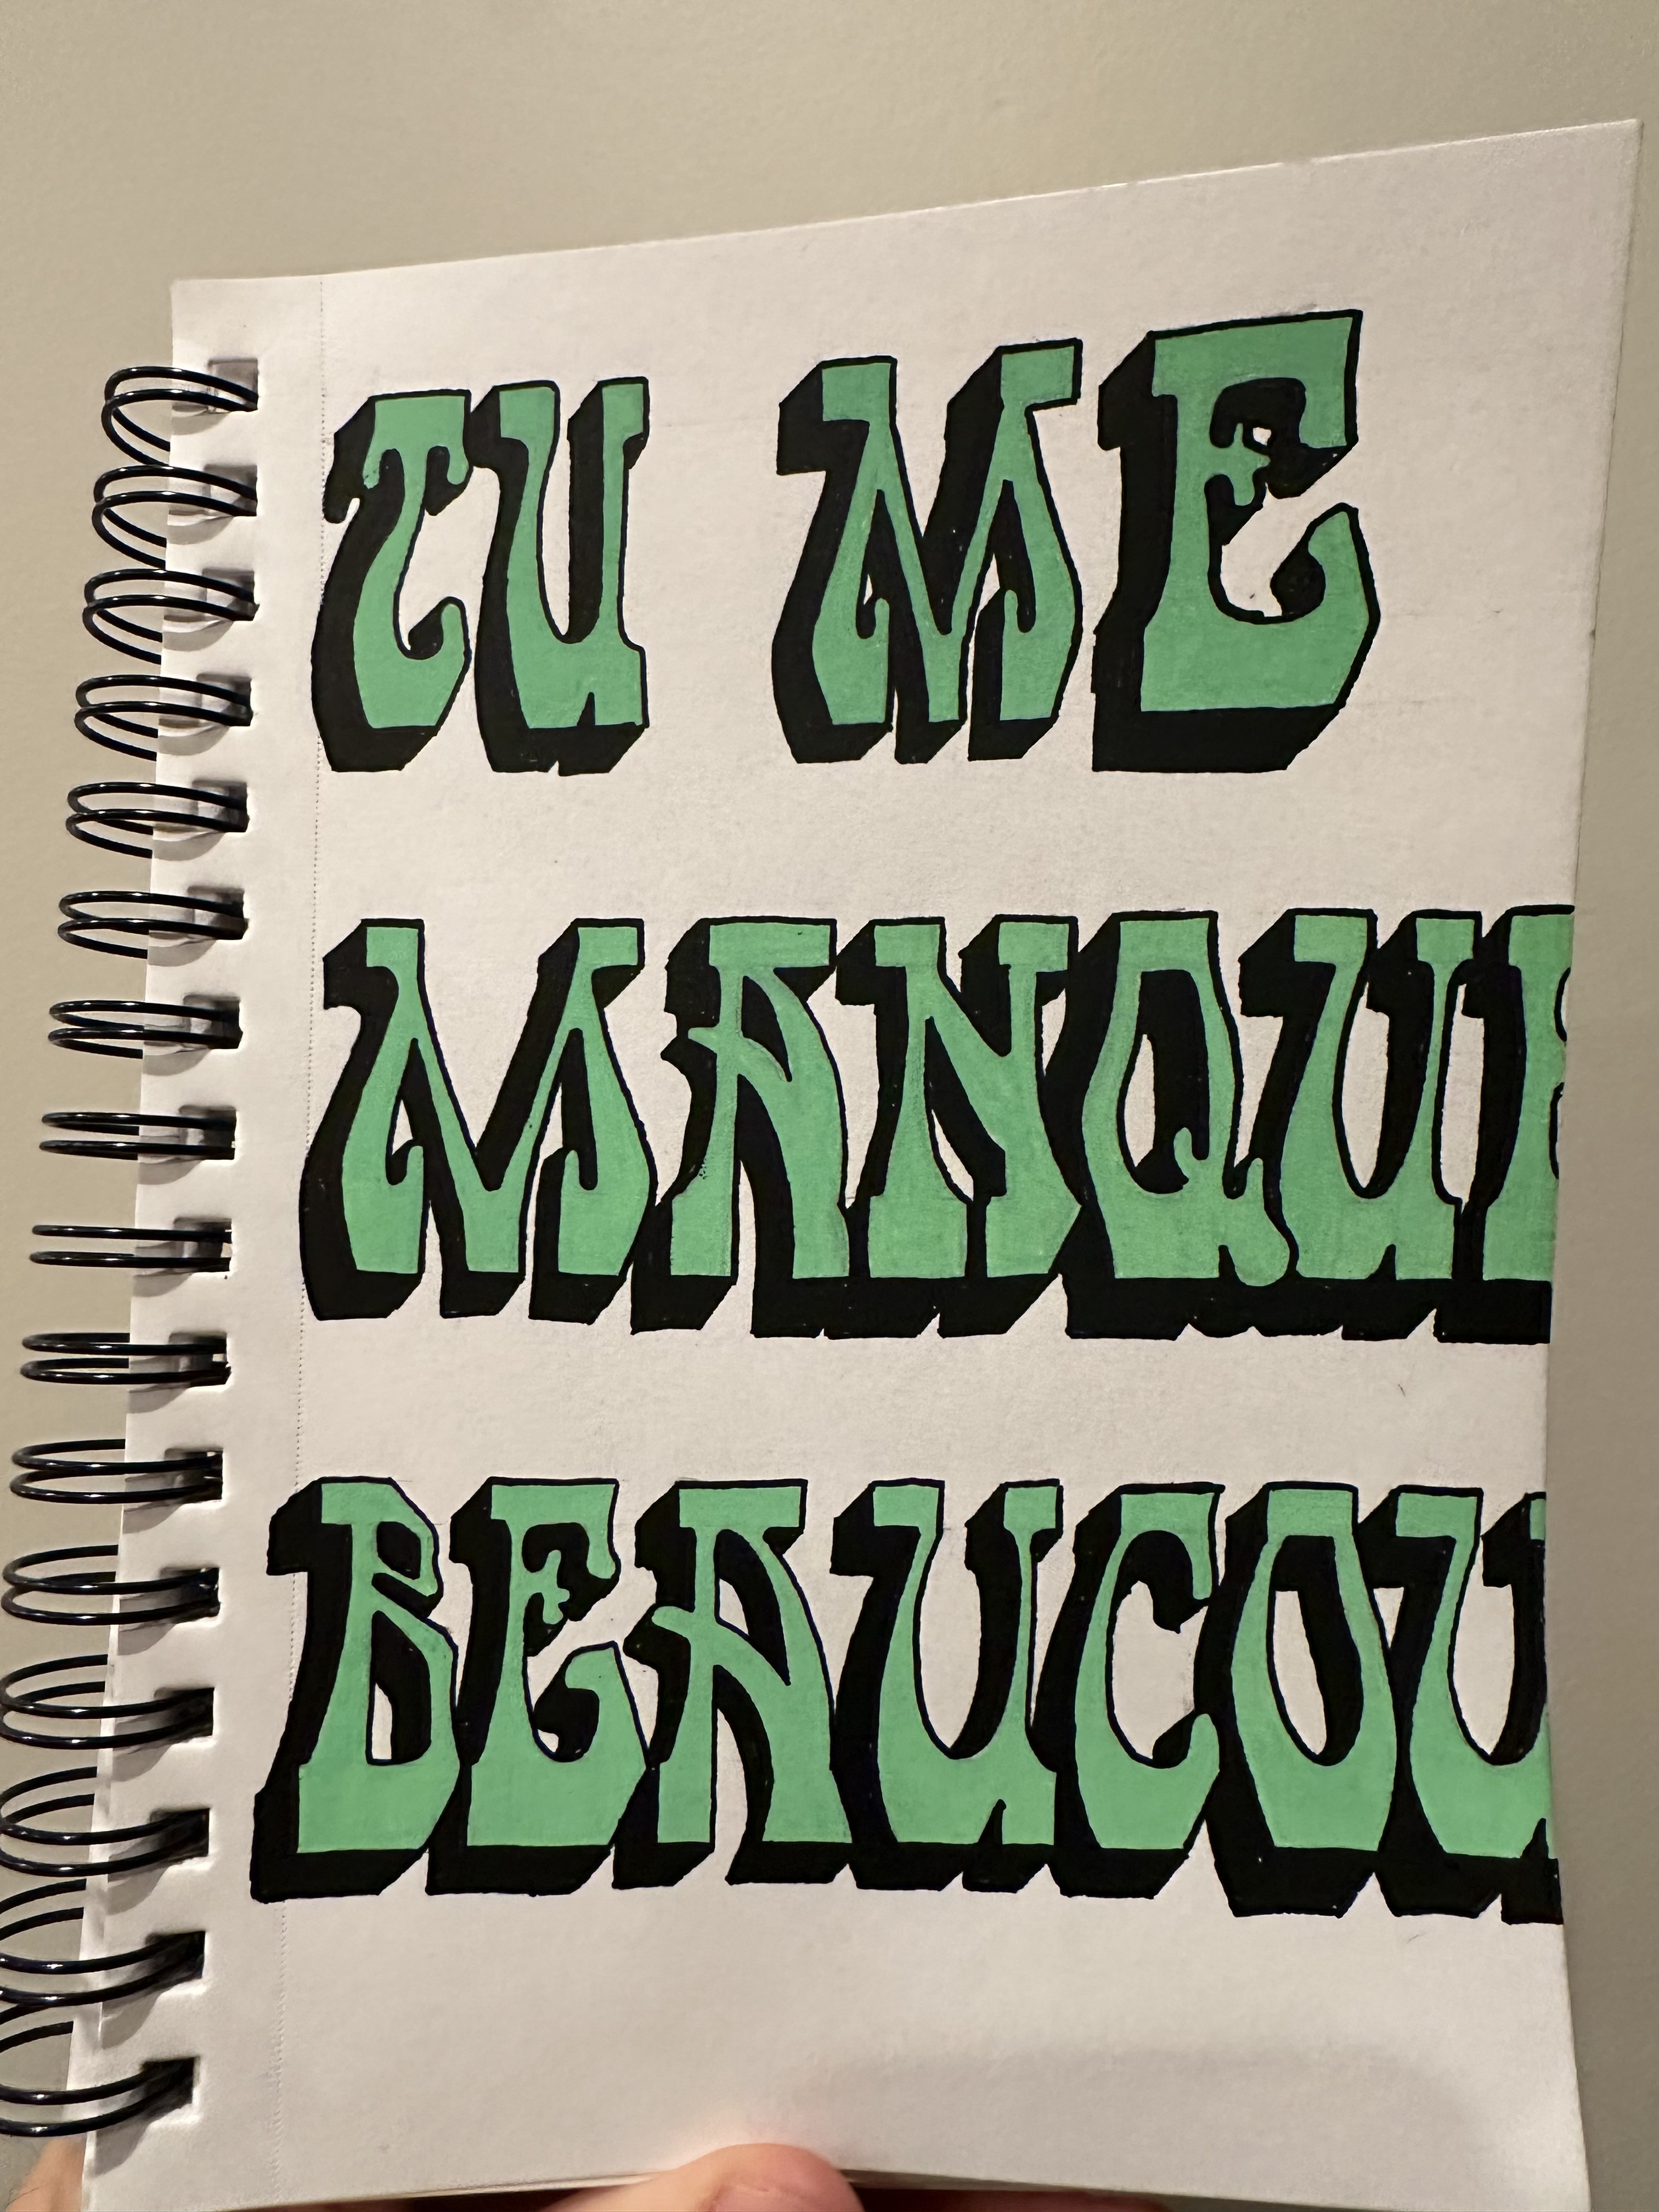 TU ME
MANQUE
BEAUCOU